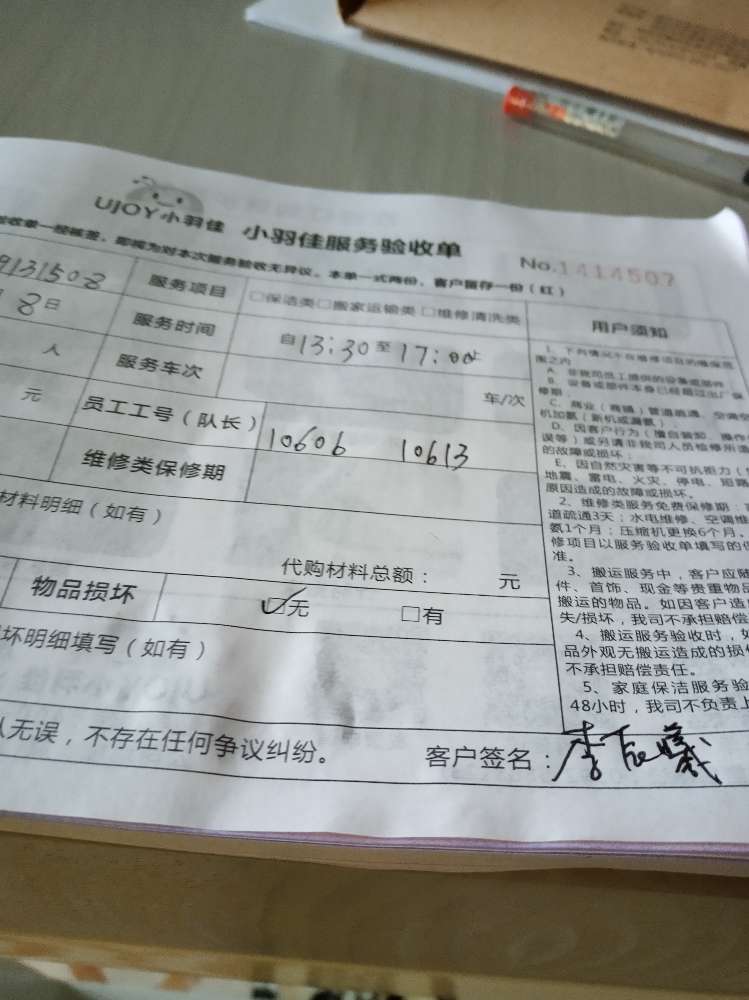 UJOY小羽佳 小羽佳服务验收单
No.1414507
验收单一经核签，即视为对本次服务验收无异议。本单一式两份，客户留存一份（红）
9131508
服务项目
□保洁类□搬家运输类□维修清洗类
用户须知
8日
服务时间
自13:30至17:00
人
服务车次
车/次
元
员工工号（队长）
10606 10613
维修类保修期
材料明细（如有）
代购材料总额： 元
物品损坏
☑无 □有
坏明细填写（如有）
认无误，不存在任何争议纠纷。
客户签名：
1、下列情况不在维修项目的维保范
围之内
A、非我司员工提供的设备或部件
B、设备或部件本身已经超过出厂保
修期。
C、商业（商铺）管道疏通、空调
机加氨（新机或漏氨）。
D、因客户行为（擅自装卸、操作
误等）或另请非我司人员检修所造
的故障或损坏。
E、因自然灾害等不可抗拒力（
地震、雷电、火灾、停电、短路
原因造成的故障或损坏。
2、维修类服务免费保修期：
道疏通3天；水电维修、空调维
氨1个月；压缩机更换6个月。
修项目以服务验收单填写的保
准。
3、搬运服务中，客户应随
件、首饰、现金等贵重物品
搬运的物品。如因客户造
失/损坏，我司不承担赔偿
4、搬运服务验收时，
品外观无搬运造成的损
不承担赔偿责任。
5、家庭保洁服务验
48小时，我司不负责上